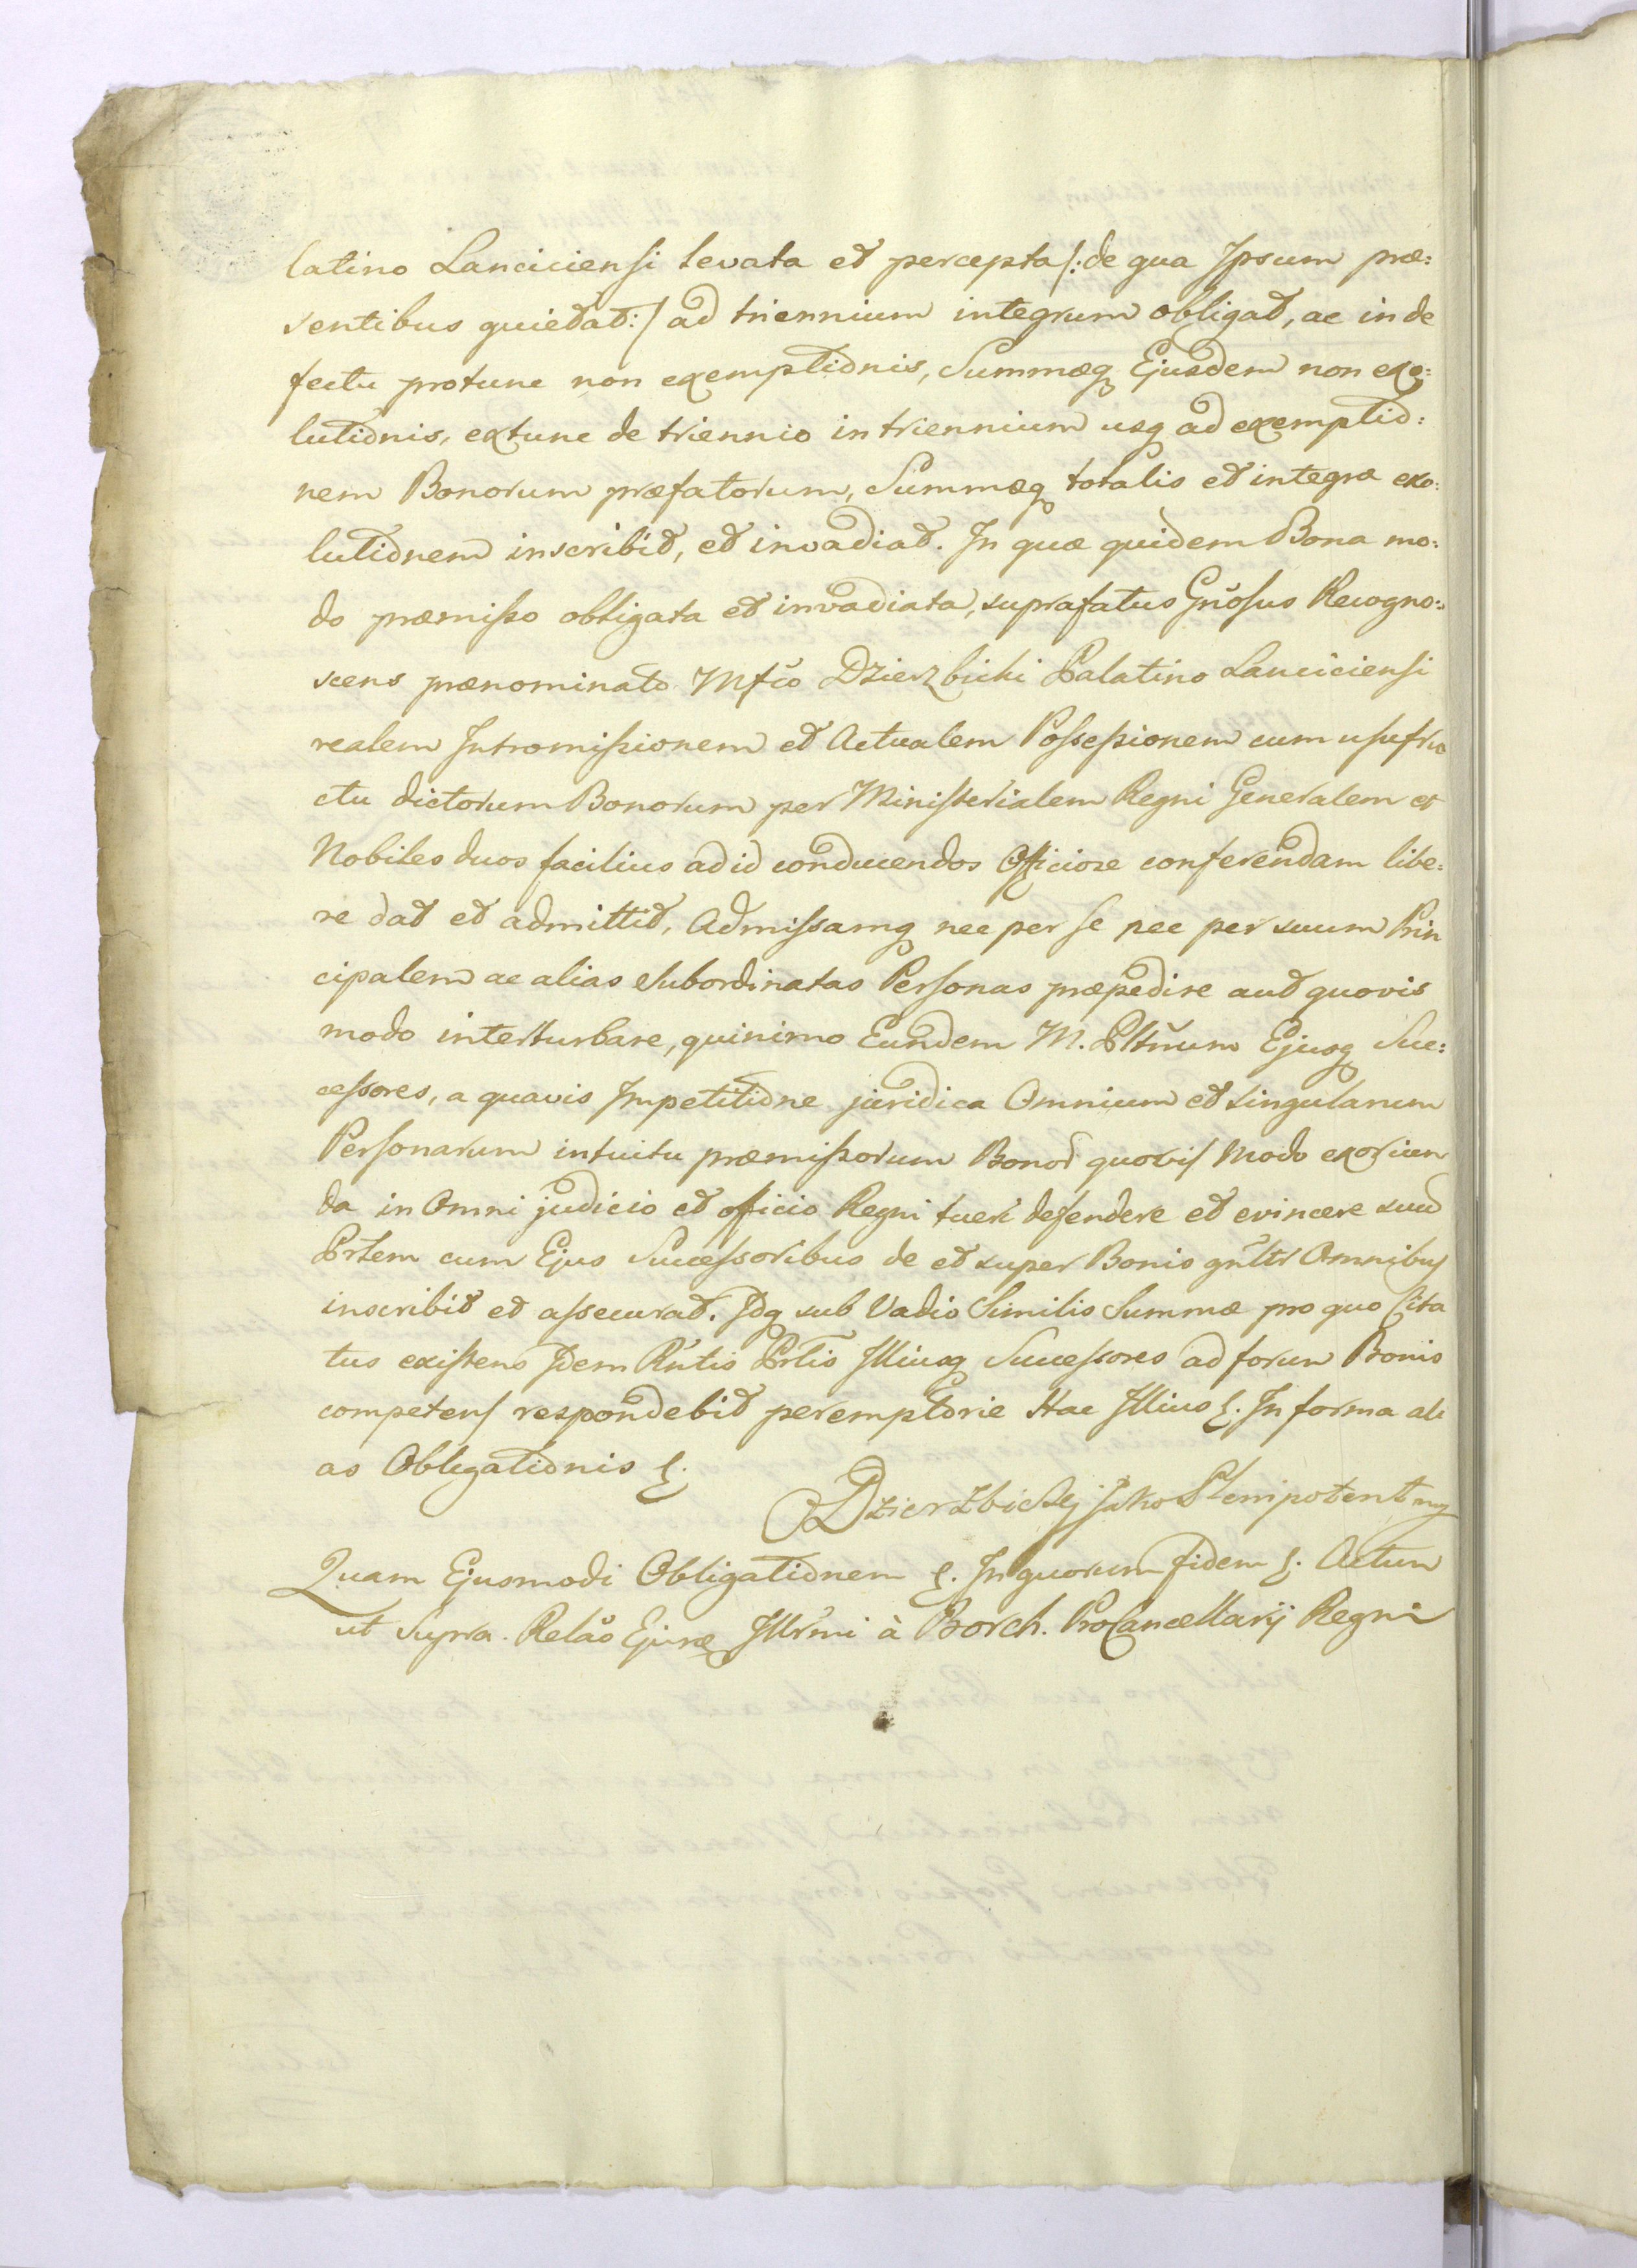 latino Lanciciensi levata et percepta /: de qua Ipsum præ:
sentibus quietat :/ ad triennium integrum obligat, ac in de
fectu protunc non exemptionis, Summæq Ejusdem non exo:
lutionis, extunc de triennio in triennium usq ad exemptio:
nem Bonorum præfatorum, Summæq totalis et integræ exo:
lutionem inscribit, et invadiat. In quæ quidem Bona mo:
do præmisso obligata et invadiata, suprafatus Gnosus Recogno:
scens prænominato Mfco Dzierzbicki Palatino Lanciciensi
realem Intromissionem et Actualem Possessionem cum usufru
ctu dictorum Bonorum per Ministerialem Regni Generalem et
Nobiles duos facilius ad id conducendos Officiose conferendam libe:
re dat et admittit, Admissamq nec per se nec per suum Prin
cipalem ac alias Subordinatas Personas præpedire aut quovis
modo interturbare, quinimo Eundem M. Pltnum Ejusq Suc:
cessores, a quavis Impetitione juridica Omnium et singularum
Personarum intuitu præmissorum Bonor quovis Modo exorien
da in Omni judicio et officio Regni tueri defendere et evincere suum
Prlem cum Ejus Successoribus de et super Bonis gnltr Omnibus
inscribit et assecurat. Idq sub Vadio Similis Summæ pro quo Cita
tus existens Idem Rntis Prlis Illiusq Successores ad forum Bonis
competens respondebit peremptorie Hac Illius &. In forma ali
as Obligationis &.
Dzierzbicky Jako Plenipotent mp
Quam Ejusmodi Obligationem &. In quorum fidem &. Actum
ut Supra. Relao Ejusq Illrmi à Borch. ProCancellarij Regni